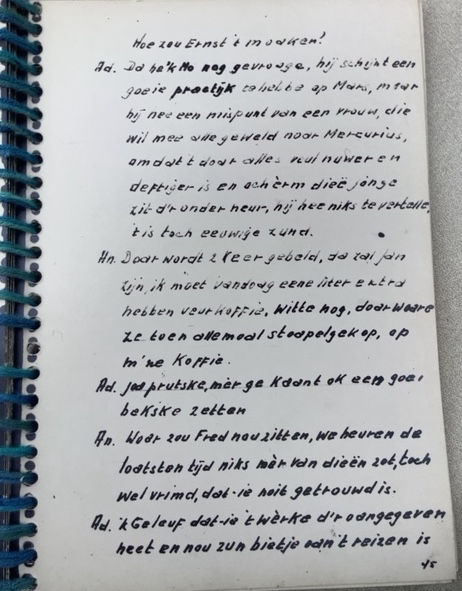 Hoe zou Ernst 't maaken!
Ad. Da ha'k No nog gevraage, hij schijnt een
goeie practijk te hebbe op Mars, maar
hij nee een mispunt van een vrouw, die
wil mee alle geweld naar Mercurius,
omdat t daar alles veul nuwer en
deftiger is en ach erm dieë jonge
zit d'r onder heur, hij hee niks te vertelle,
t is toch eeuwige zund.
An. Daar wordt 2 keer gebeld, da zal Jan
zijn, ik moet vandaag eene liter extra
hebben veur koffie, witte nog, daar waare
ze toen allemaal stoapelgek op, op
m'ne koffie.
Ad. Joa prutske, mèr ge kaant ok een goei
bekske zetten
An. Waar zou Fred nou zitten, we heuren de
laatsten tijd niks mèr van dieën zot, toch
wel vrimd, dat-ie noit getrouwd is.
Ad. 'k Geleuf dat-ie 't wèrke d'r aangegeven
heet en nou zun bietje aan't reizen is
45